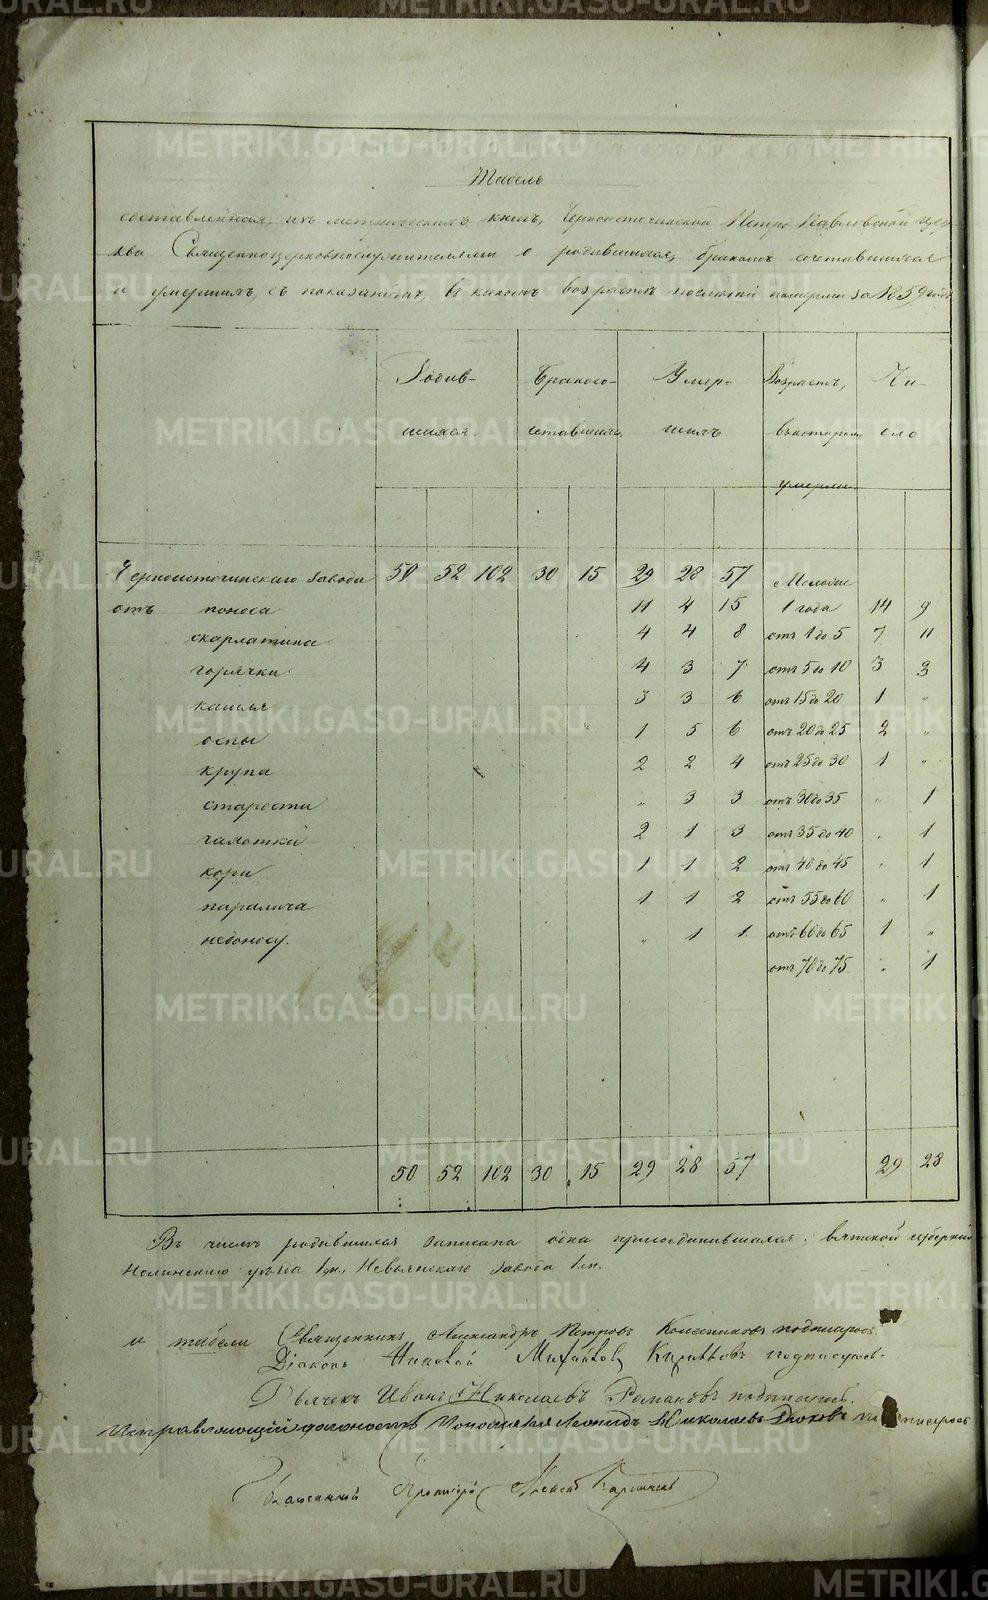 Табель
составленная, изъ метрическихъ книгъ, Черноисточинской Петро Павловской цер-
кви Священноцерковнослужителями о родившихся, бракомъ сочетавшихся
и умершихъ, съ показаніемъ, въ какомъ возрастѣ послѣдніе померли за 1859 годъ
Родив- Бракосо- Умер- Возрастъ, Чи-
шихся. четавшихся, шихъ въ которомъ сло
умерли
Черноисточинскаго завода 50 52 102 30 15 29 28 57 Моложе
отъ поноса 11 4 15 1 года 14 9
скарлатина 4 4 8 отъ 1 до 5 7 11
горячки 4 3 7 отъ 5 до 10 3 3
кашля 3 3 6 отъ 15 до 20 1 "
оспы 1 5 6 отъ 20 до 25 2 "
крупа 2 2 4 отъ 25 до 30 1 "
старости " 3 3 отъ 30 до 35 " 1
чахотки 2 1 3 отъ 35 до 40 " 1
кори 1 1 2 отъ 40 до 45 " 1
паралича 1 1 2 отъ 55 до 60 " 1
недоносу. " 1 1 отъ 60 до 65 1 "
отъ 70 до 75 " 1
50 52 102 30 15 29 28 57 29 28
Въ числѣ родившихся записана одна присоединившаяся, вятской губерніи
Нолинскаго уѣзда 1 ж., Невьянскаго завода 1 м.
и табели Священникъ Александръ Петровъ подписрось.
Діаконъ Николай Михайловъ подписуюсь.
Дьячекъ Иванъ Николаевъ Романовъ подписуюсь.
Исправляющій должность Пономаря Леонидъ Николаевъ
Протоіерей Алексѣй
METRIKI.GASO-URAL.RU